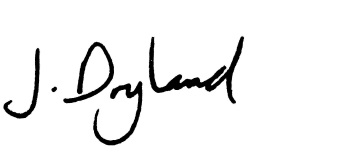 J. Dryland